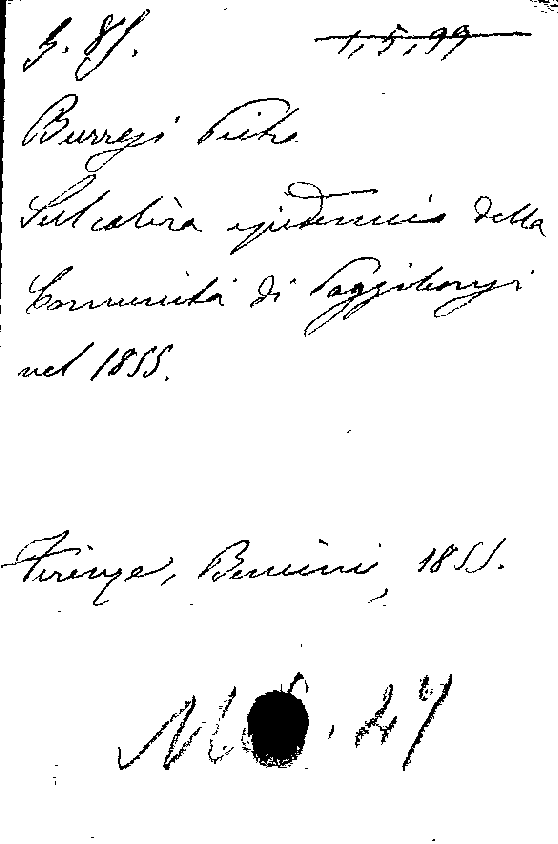 3. 85.
1, 5, 99
Burresi Pietro
Sul colèra epidemico della
Comunità di Poggibonsi
nel 1855.
Firenze, Bencini, 1855.
27